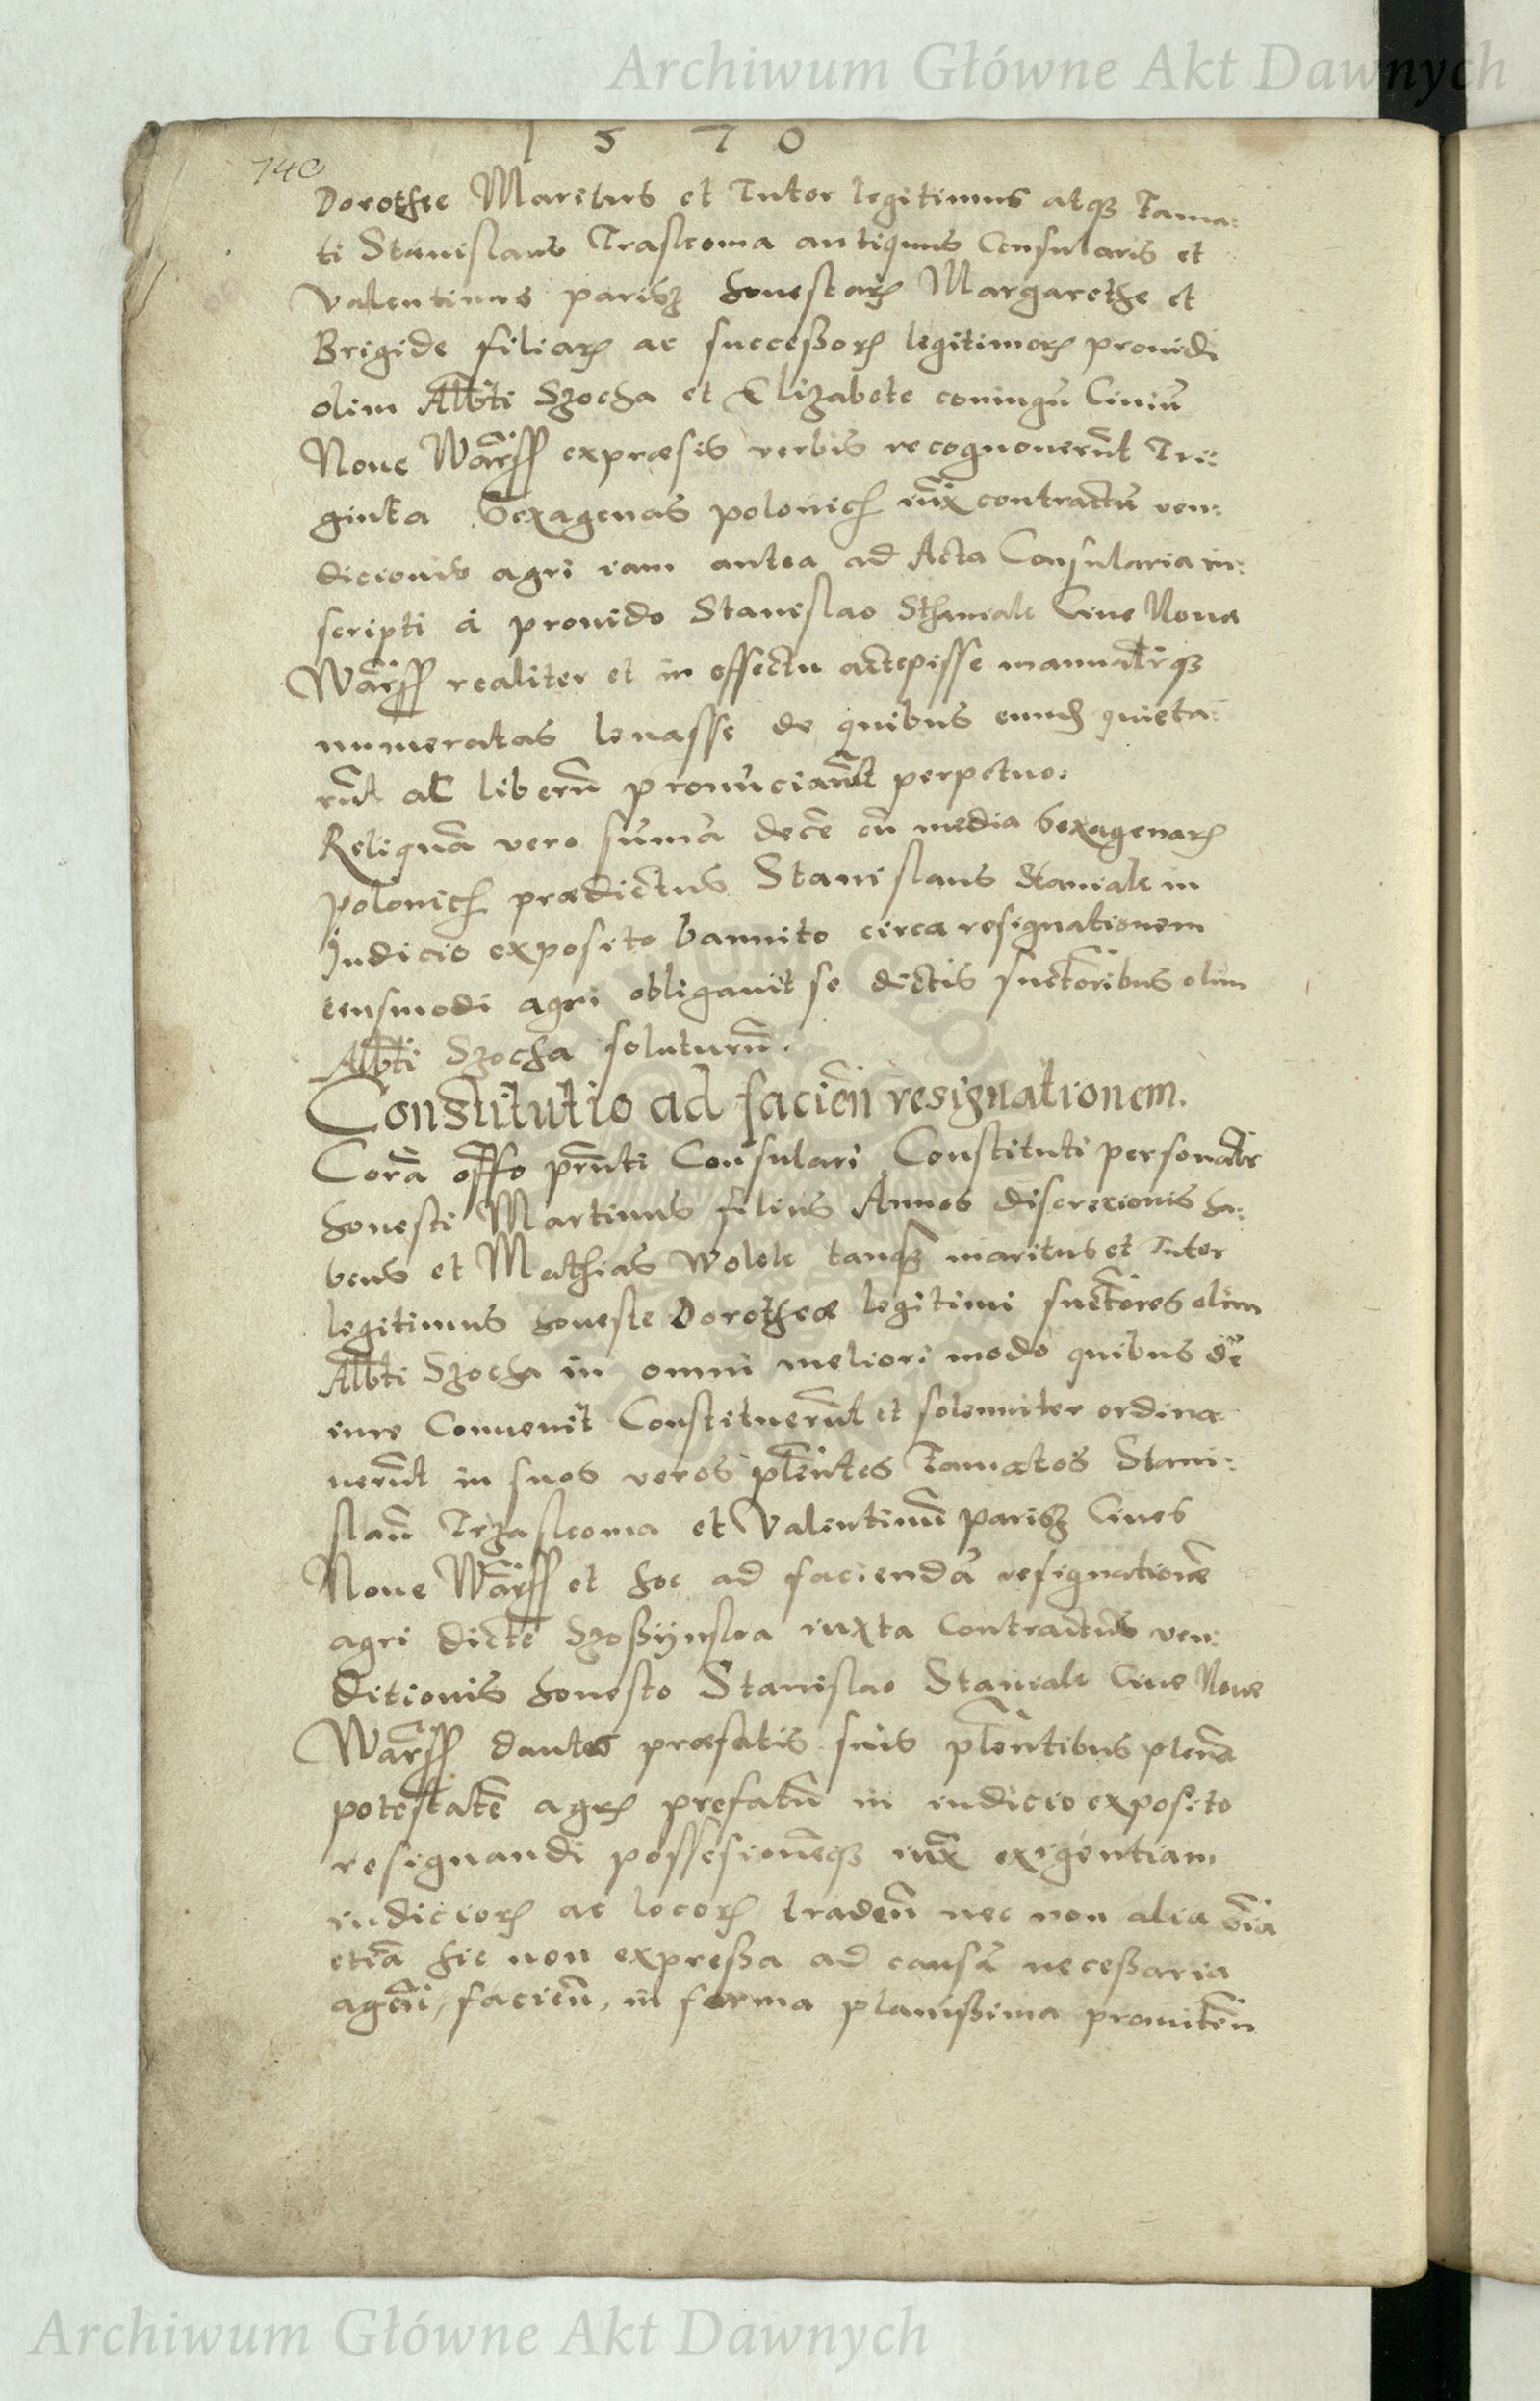 Archiwum Główne Akt Dawnych
1 5 7 0
740
Dorothee Maritus et Tutor legitimus atqꝫ Fama:
ti Stanislaus Traskoma antiquus Consularis et
Valentinus parisz honestarꝫ Margarethe et
Brigide filiarꝫ ac successorꝫ legitimorꝫ prouidi
olim Albti Szocha et Elizabete coniugũ Ciuiũ
Noue Warss expræsis verbis recognouerũt Tri:
ginta Sexagenas polonich iux contractũ ven:
dicionis agri iam antea ad Acta Consularia in:
scripti à prouido Stanislao Sthaniale Ciue Noua
Warss realiter et in effectu accepisse manualrqꝫ
numeratas leuasse de quibus eund quieta:
rũt ac liberũ pronũciarũt perpetuo.
Reliquã vero sũmã decẽ cũ media Sexagenarꝫ
polonich prædictus Stanislaus Staniale in
Judicio exposito bannito circa resignationem
eiusmodi agri obligauit se dictis suctoribus olim
Albti Szocha soluturũ.
Constitutio ad facien resignationem.
Corã offo prñti Consulari Constituti personalr
honesti Martinus filius Annos discrecionis ha:
bens et Mathias Wolek tanqꝫ maritus et Tutor
legitimus honeste Dorotheæ legitimi suctores olim
Albti Szocha in omni meliori modo quibus de
iure Conuenit Constituerũt et solenniter ordina
uerũt in suos veros plentes Famatos Stani:
slaũ Trzaskoma et Valentinũ parisz Ciues
Noue Warss et hoc ad faciendã resignationẽ
agri dicte Szoßÿnska iuxta Contractus ven:
ditionis honesto Stanislao Staniale Ciue Noue
Warss dantes præfatis suis plentibus plenã
potestatẽ agrꝫ prefatũ in iudicio exposito
resignandi possesionẽqꝫ iux exigentiam
iudiciorꝫ ac locorꝫ traden nec non alia oĩa
etiã hic non expreßa ad causã neceßaria
agen, facien, in forma planißima promitten
Archiwum Główne Akt Dawnych